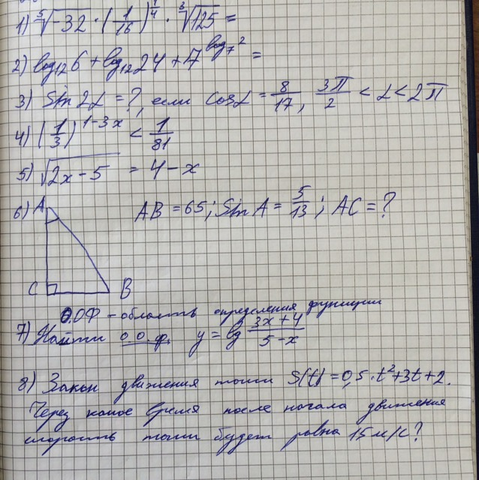 1) ⁵√-32 · (1/16)^(1/4) · ³√125 =
2) log₁₂6 + log₁₂24 + 7^(log₇2) =
3) Sin 2α = ?, если Cosα = 8/17, 3π/2 < α < 2π
4) (1/3)^(1-3x) < 1/81
5) √(2x-5) = 4-x
6) A AB = 65; Sin A = 5/13; AC = ?
C B
О.О.Ф - область определения функции
7) Найти о.о.ф. y = lg (3x+4)/(5-x)
8) Закон движения точки S(t) = 0,5·t²+3t+2.
Через какое время после начала движения
скорость точки будет равна 15 м/с?